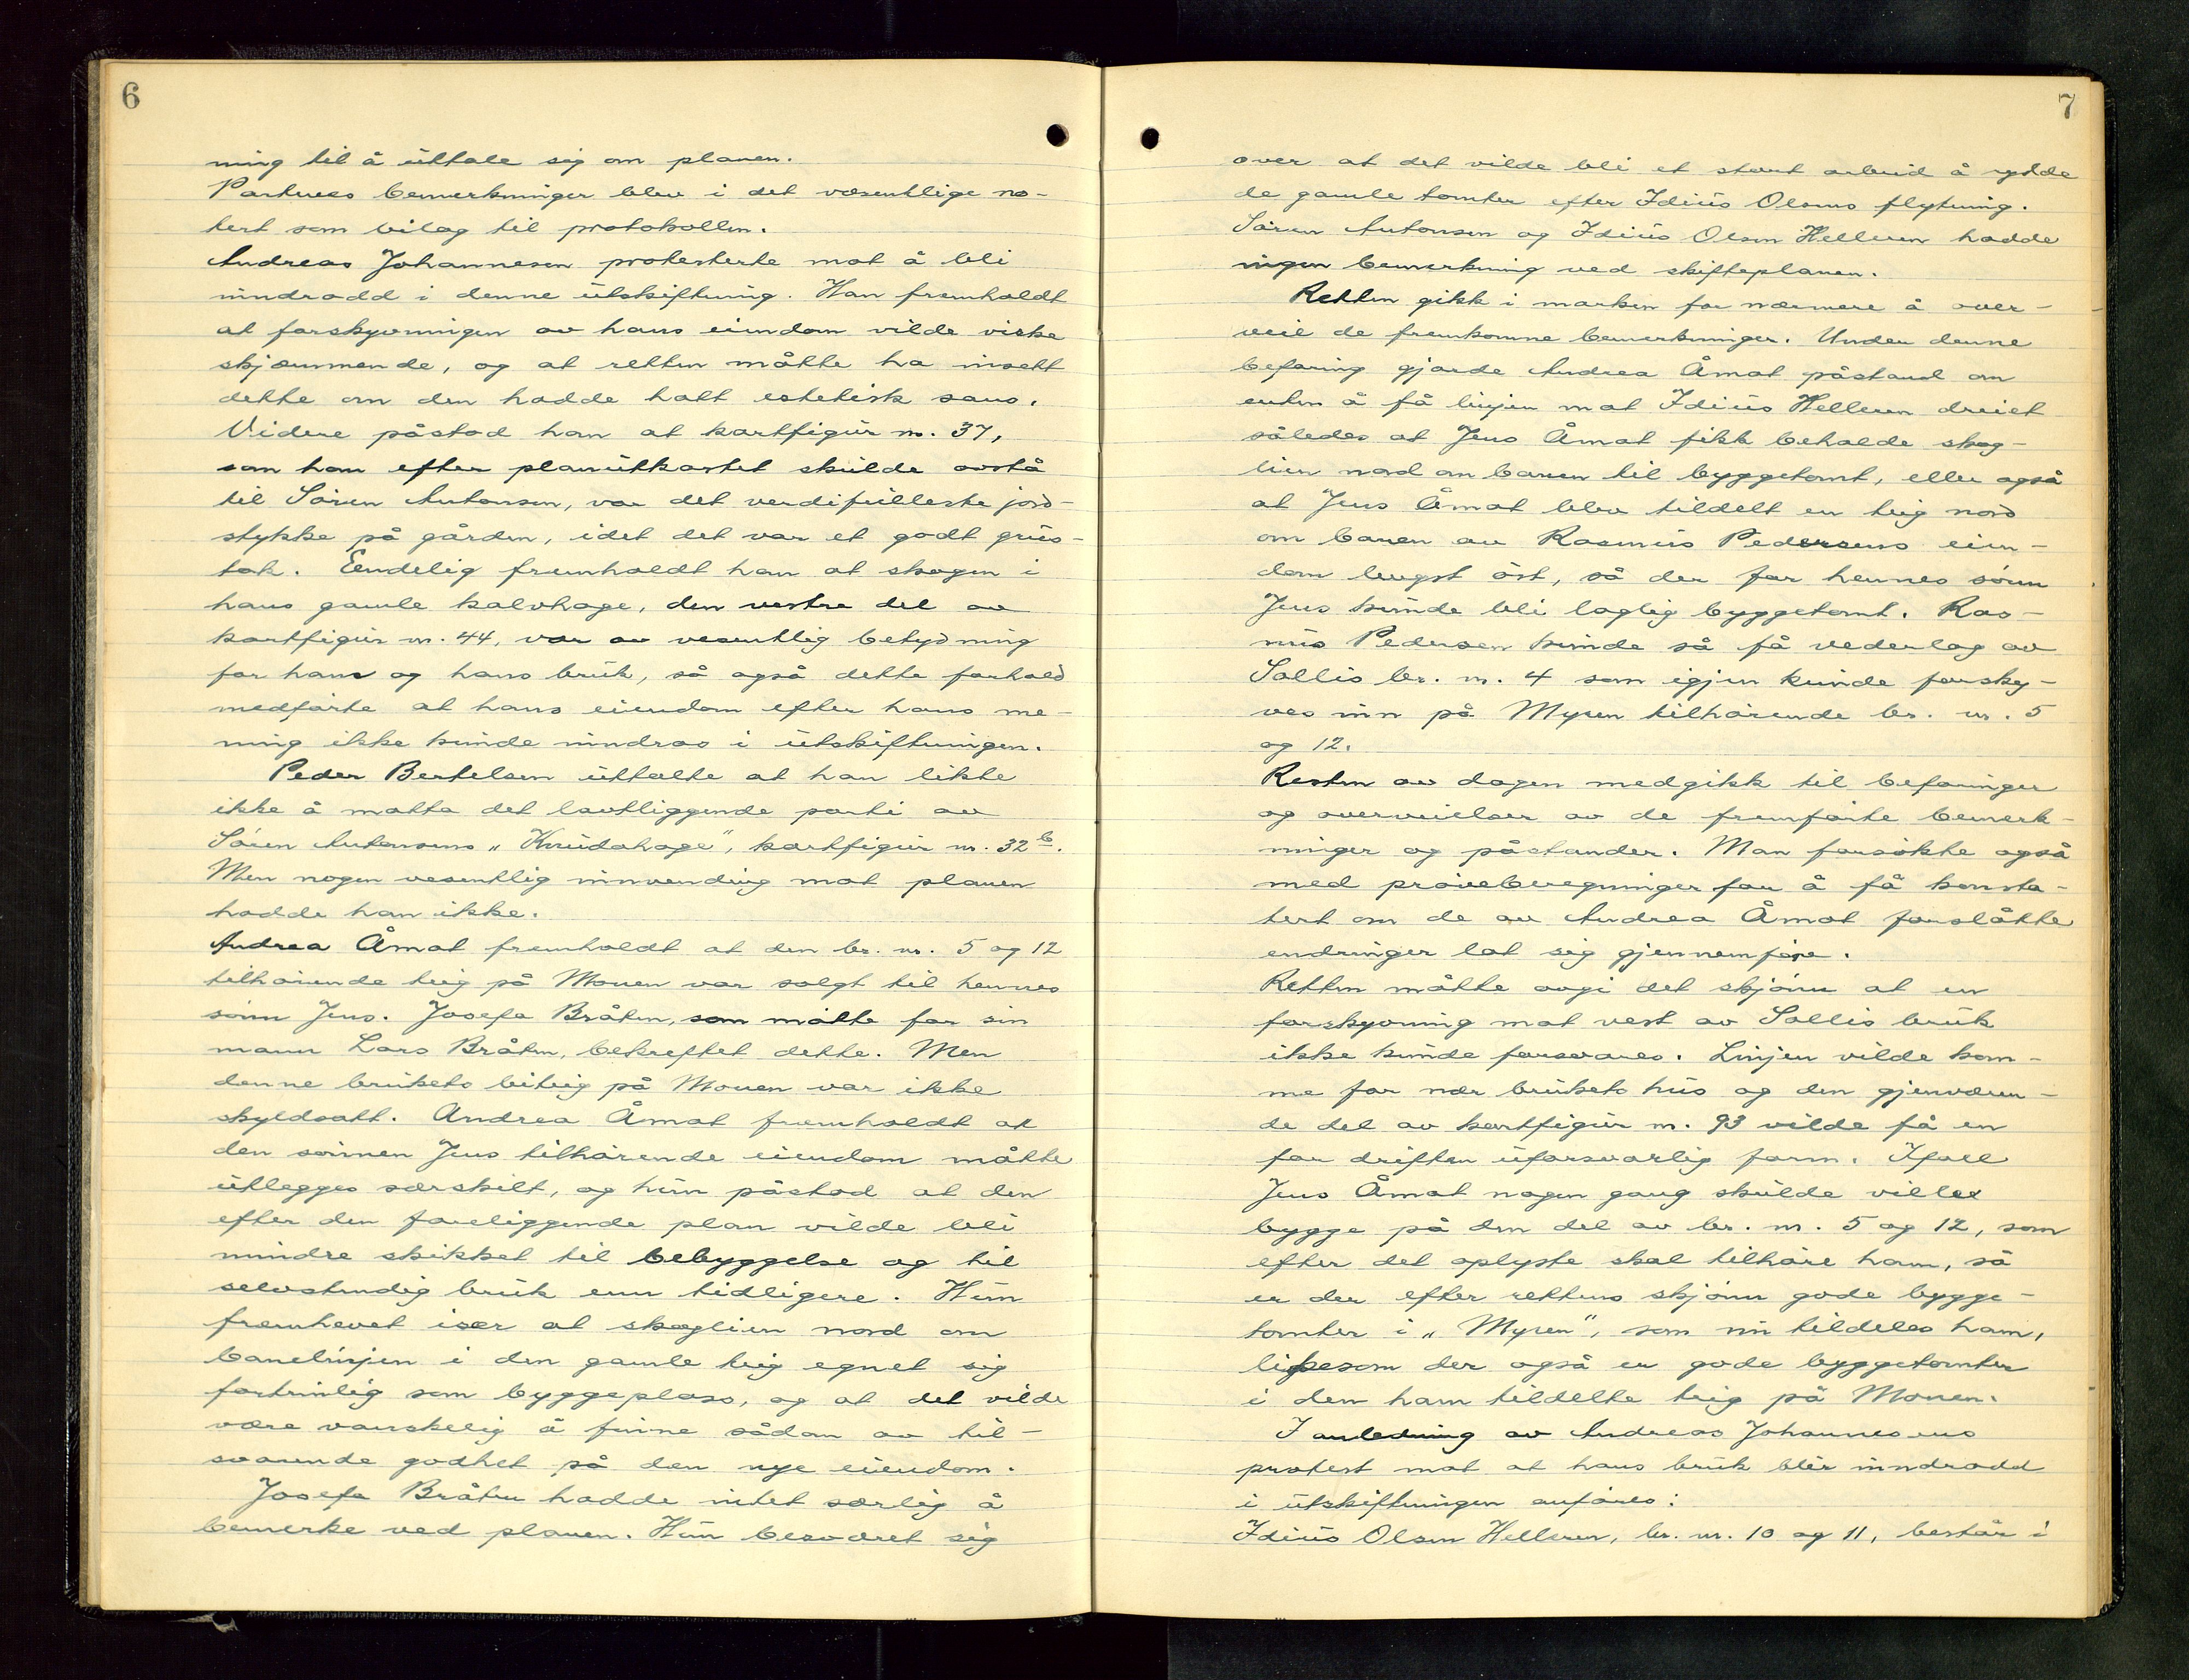 6
ning til å uttale sig om planen.
Partenes bemerkninger blev i det væsentlige no-
tert som bilag til protokollen.
Andreas Johannesen protesterte mot å bli
inndradd i denne utskiftning. Han fremholdt
at forskyvningen av hans eiendom vilde virke
skjæmmende, og at retten måtte ha innsett
dette om den hadde hatt estetisk sans.
Videre påstod han at kartfigur nr. 37,
som han efter planutkastet skulde avstå
til Sören Antonsen, var det verdifulleste jord-
stykke på gården, idet det var et godt grus-
tak. Eendelig fremholdt han at skogen i
hans gamle kalvhage, den vestre del av
kartfigur nr. 44, var av vesentlig betydning
for ham og hans bruk, så også dette forhold
medförte at hans eiendom efter hans me-
ning ikke kunde inndras i utskiftningen.
Peder Bertelsen uttalte at han likte
ikke å motta det lavtliggende parti av
Sören Antonsens „Knudahage", kartfigur nr. 32 b.
Men nogen vesentlig innvending mot planen
hadde han ikke.
Andrea Åmot fremholdt at den br. nr. 5 og 12
tilhörende teig på Monen var solgt til hennes
sönn Jens. Josefa Bråten, som mötte for sin
mann Lars Bråten, bekreftet dette. Men
denne brukets biteig på Monen var ikke
skyldsatt. Andrea Åmot fremholdt at
den sönnen Jens tilhörende eiendom måtte
utlegges særskilt, og hun påstod at den
efter den foreliggende plan vilde bli
mindre skikket til bebyggelse og til
selvstendig bruk enn tidligere. Hun
fremhevet især at skoglien nord om
banelinjen i den gamle teig egnet sig
fortrinlig som byggeplass, og at det vilde
være vanskelig å finne sådan av til-
svarende godhet på den nye eiendom.
Josefa Bråten hadde intet særlig å
bemerke ved planen. Hun besværet sig
7
over at det vilde bli et stort arbeid å rydde
de gamle tomter efter Idius Olsens flytning.
Sören Antonsen og Idius Olsen Helleren hadde
ingen bemerkning ved skifteplanen.
Retten gikk i marken for nærmere å over-
veie de fremkomne bemerkninger. Under denne
befaring gjorde Andrea Åmot påstand om
enten å få linjen mot Idius Helleren dreiet
således at Jens Åmot fikk beholde skog-
lien nord om banen til byggetomt, eller også
at Jens Åmot blev tildelt en teig nord
om banen av Rasmus Pedersens eien-
dom lengst öst, så der for hennes sönn
Jens kunde bli laglig byggetomt. Ras-
mus Pedersen kunde så få vederlag av
Sollis br. nr. 4 som igjen kunde forsky-
ves inn på Myren tilhörende br. nr. 5
og 12.
Resten av dagen medgikk til befaringer
og overveielser av de fremförte bemerk-
ninger og påstander. Man forsökte også
med pröveberegninger for å få konsta-
tert om de av Andrea Åmot foreslåtte
endringer lot sig gjennemföre.
Retten måtte avgi det skjönn at en
forskyvning mot vest av Sollis bruk
ikke kunde forsvares. Linjen vilde kom-
me for nær brukets hus og den gjenværen-
de del av kartfigur nr. 93 vilde få en
for driften uforsvarlig form. Ifall
Jens Åmot nogen gang skulde ville
bygge på den del av br. nr. 5 og 12, som
efter det oplyste skal tilhöre ham, så
er der efter rettens skjönn gode bygge-
tomter i „Myren", som nu tildeles ham,
likesom der også er gode byggetomter
i den ham tildelte teig på Monen.
I anledning av Andreas Johannesens
protest mot at hans bruk blir inndradd
i utskiftningen anföres:
Idius Olsen Helleren, br. nr. 10 og 11, består i